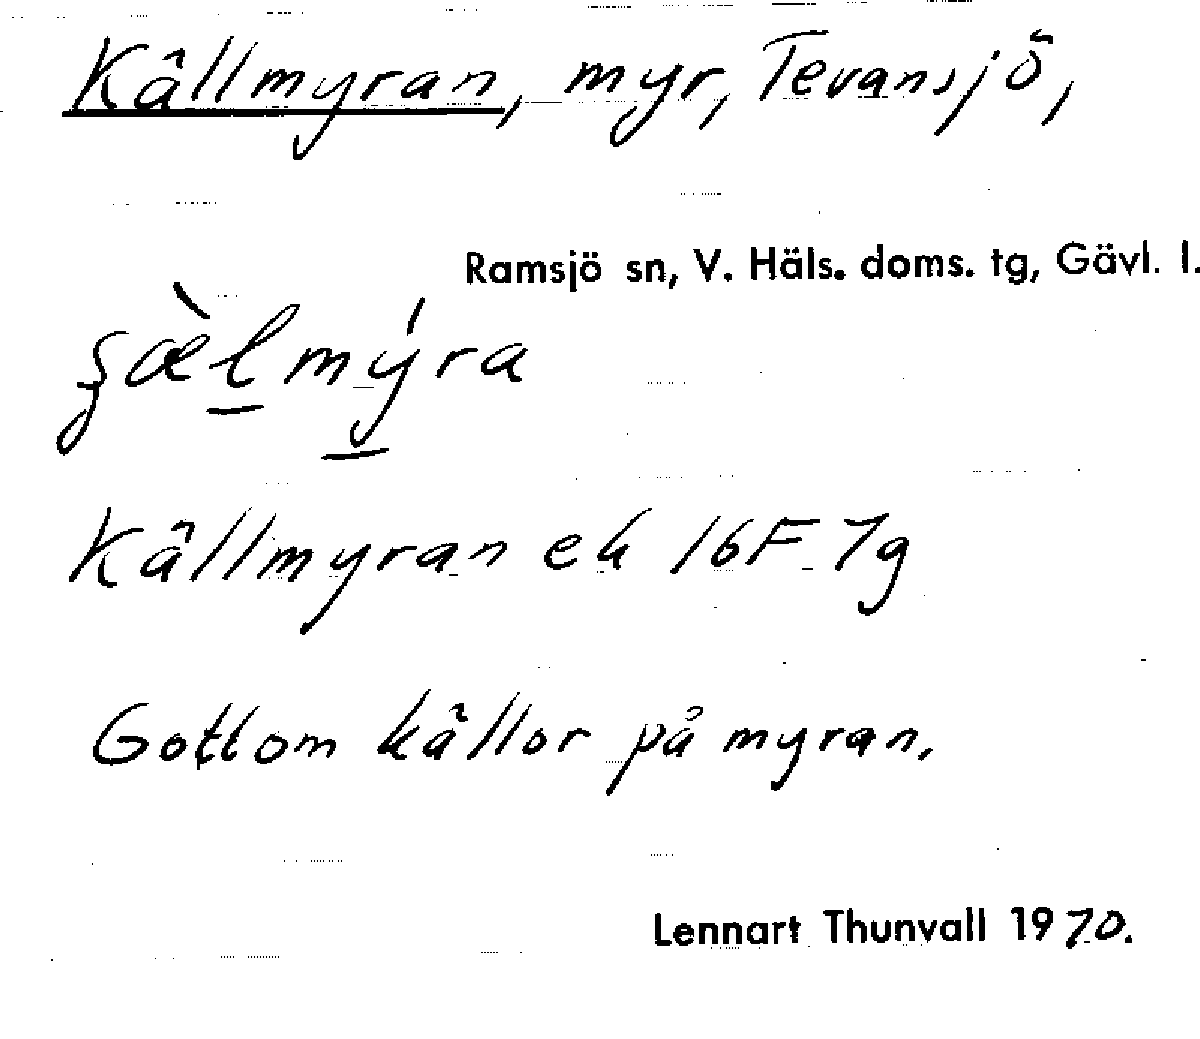 Källmyran, myr, Tevansjö,
Ramsjö sn, V. Häls. doms. tg, Gävl. l.
Källmyran ek 16F 7g
Gottom källor på myran.
Lennart Thunvall 1970.